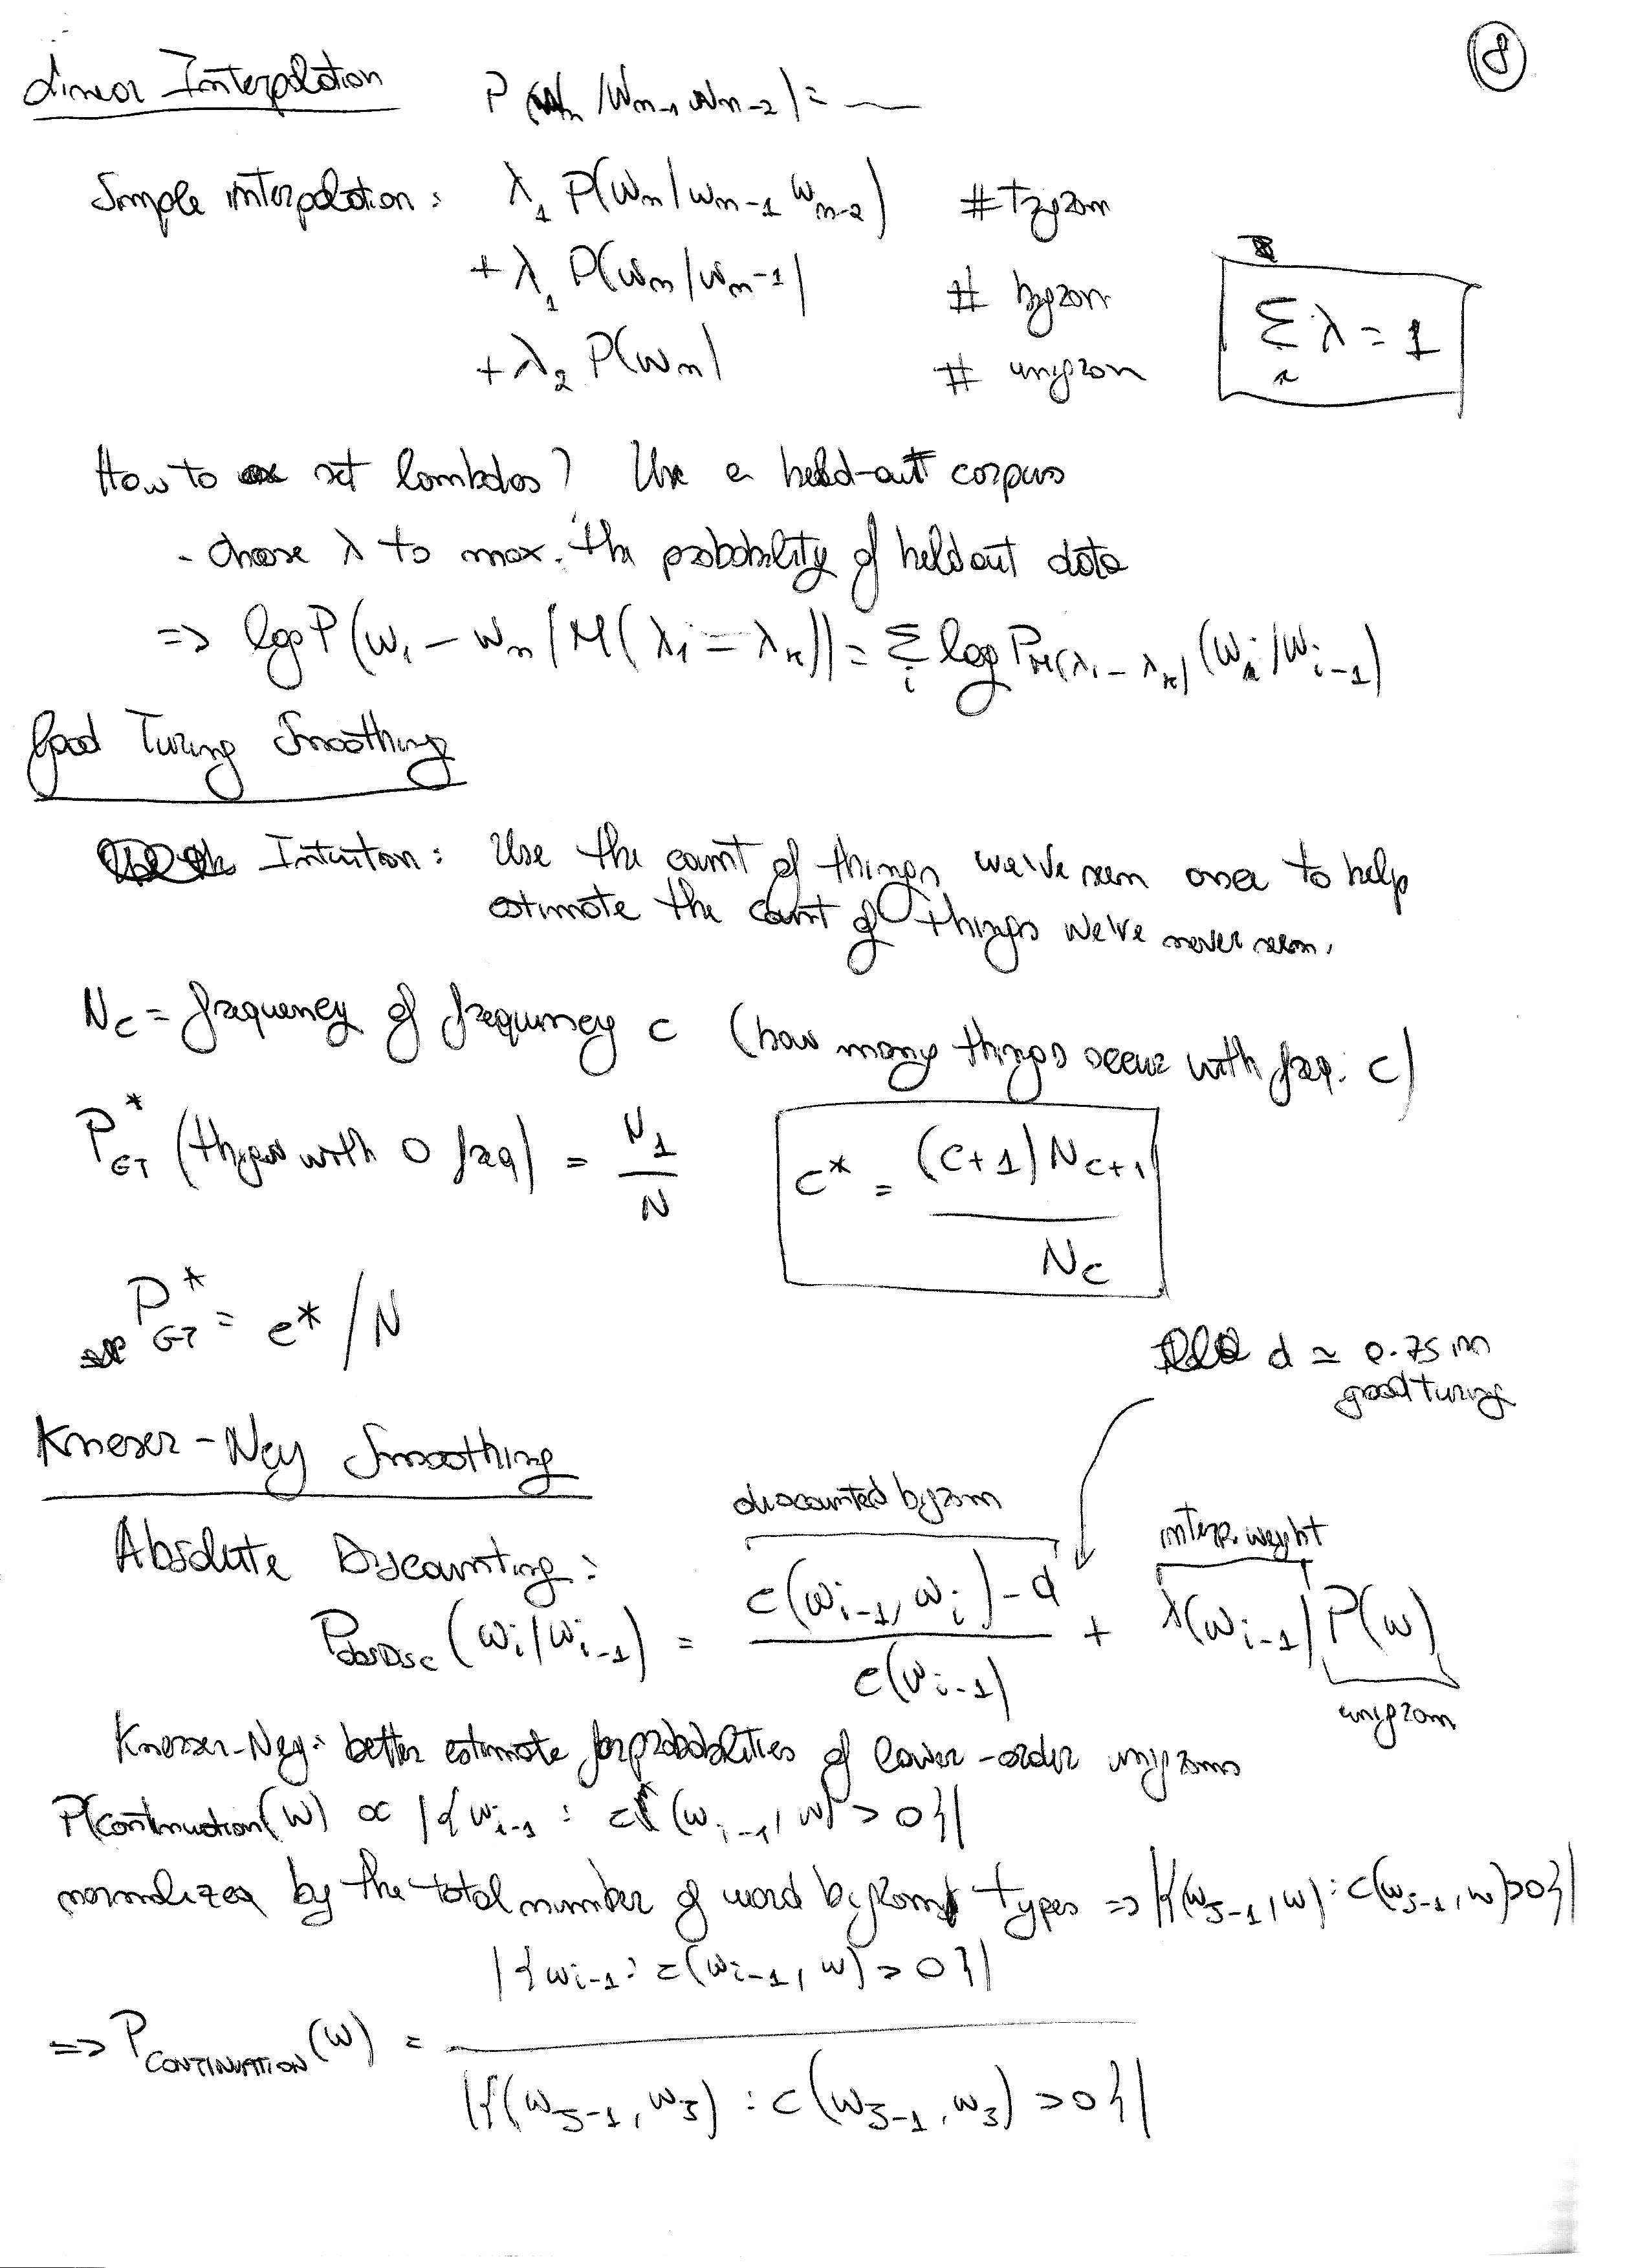 8
Linear Interpolation P(wn/wn-1 wn-2) =
Simple interpolation: λ1 P(wn|wn-1 wn-2) # trigram
+ λ1 P(wn/wn-1) # bigram
+ λ2 P(wn) # unigram
Σi λ = 1
How to set lambdas? Use a held-out corpus
- choose λ to max. the probability of heldout data
=> log P(w1 - wn / M(λ1 - λk)) = Σi log PM(λ1 - λk) (wi/wi-1)
Good Turing Smoothing
Intuition: Use the count of things we've seen once to help
estimate the count of things we've never seen.
Nc = frequency of frequency c (how many things occur with freq. c)
P*GT (things with 0 freq) = N1 / N
c* = (c+1) Nc+1 / Nc
P*GT = c* / N
d ≃ 0.75 in
good turing
Kneser-Ney Smoothing
discounted bigram
interp. weight
Absolute Discounting:
PAbsDisc (wi/wi-1) = c(wi-1, wi) - d / c(wi-1) + λ(wi-1) P(w)
unigram
Knesser-Ney: better estimate for probabilities of lower-order unigrams
P(continuation(w) ∝ |{wi-1 : c(wi-1, w) > 0}|
normalized by the total number of word bigram types => |{(wj-1, w) : c(wj-1, w) > 0}|
=> PCONTINUATION(w) = |{wi-1 : c(wi-1, w) > 0}| / |{(wj-1, wj) : c(wj-1, wj) > 0}|